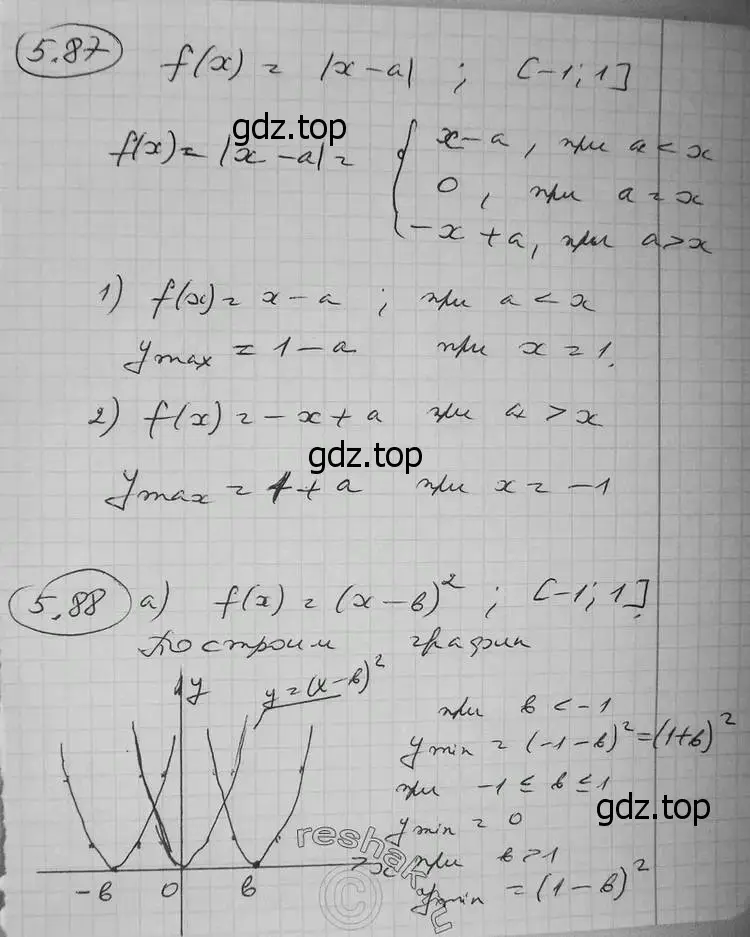 5.87 f(x) = |x-a| ; [-1; 1]
gdz.top
f(x) = |x-a| = { x-a, при a < x
0, при a = x
-x+a, при a > x
1) f(x) = x-a ; при a < x
y max = 1-a при x = 1.
2) f(x) = -x+a при a > x
gdz.top
y max = 1+a при x = -1
5.88 а) f(x) = (x-в)² ; [-1; 1]
Построим график
y y=(x-в)²
при в < -1
y min = (-1-в)² = (1+в)²
при -1 ≤ в ≤ 1
gdz.top
y min = 0
при в > 1
y min = (1-в)²
-в 0 в x
reshak.ru
©